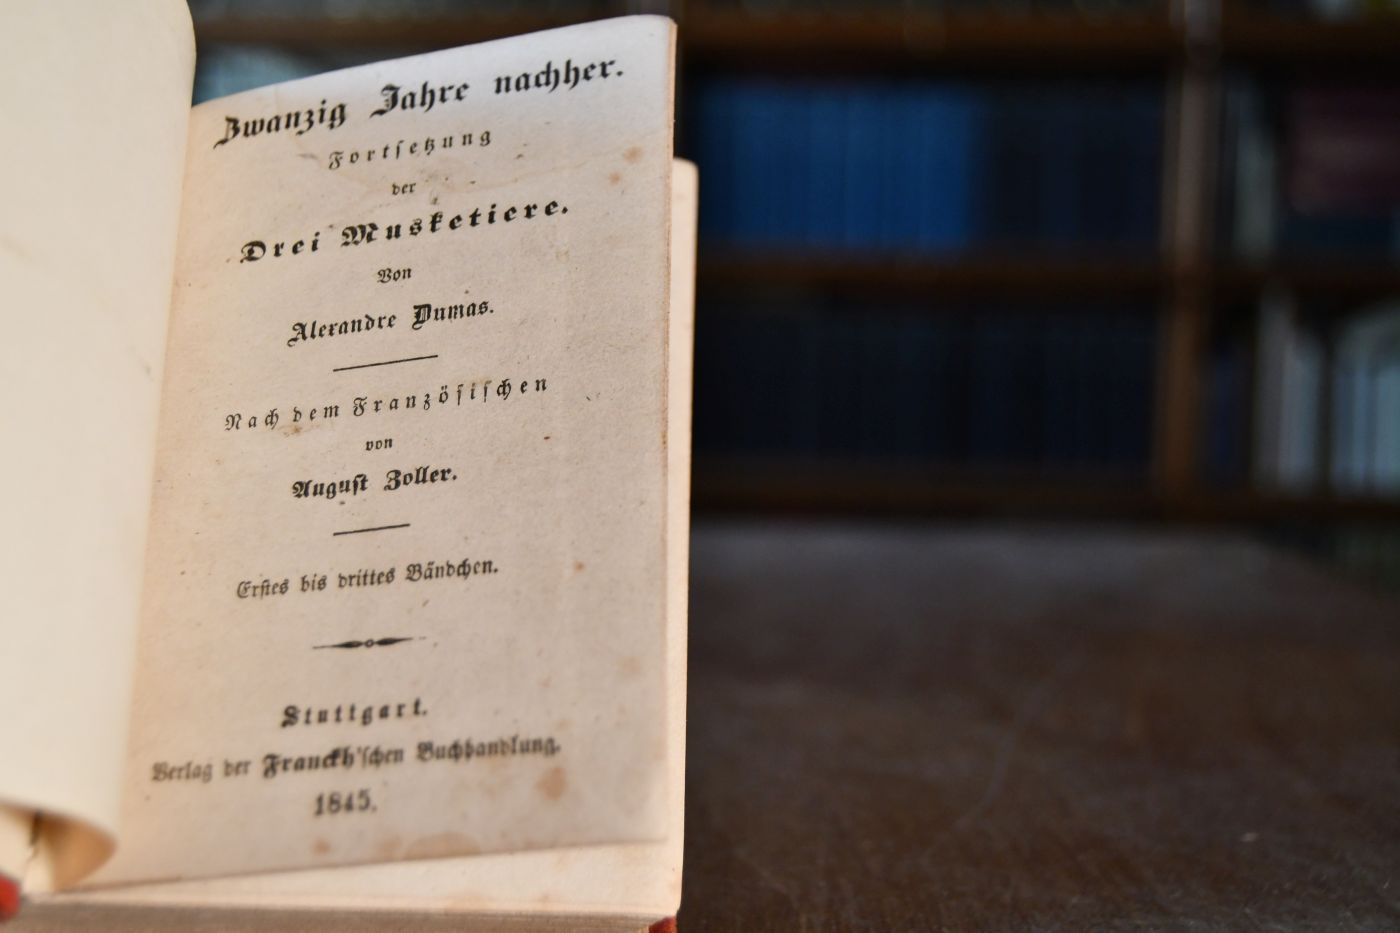 Zwanzig Jahre nachher.
Fortſetzung
der
Drei Musketiere.
Von
Alexandre Dumas.
Nach dem Franzöſiſchen
von
Auguſt Zoller.
Erſtes bis drittes Bändchen.
Stuttgart.
Verlag der Franckh'ſchen Buchhandlung.
1845.